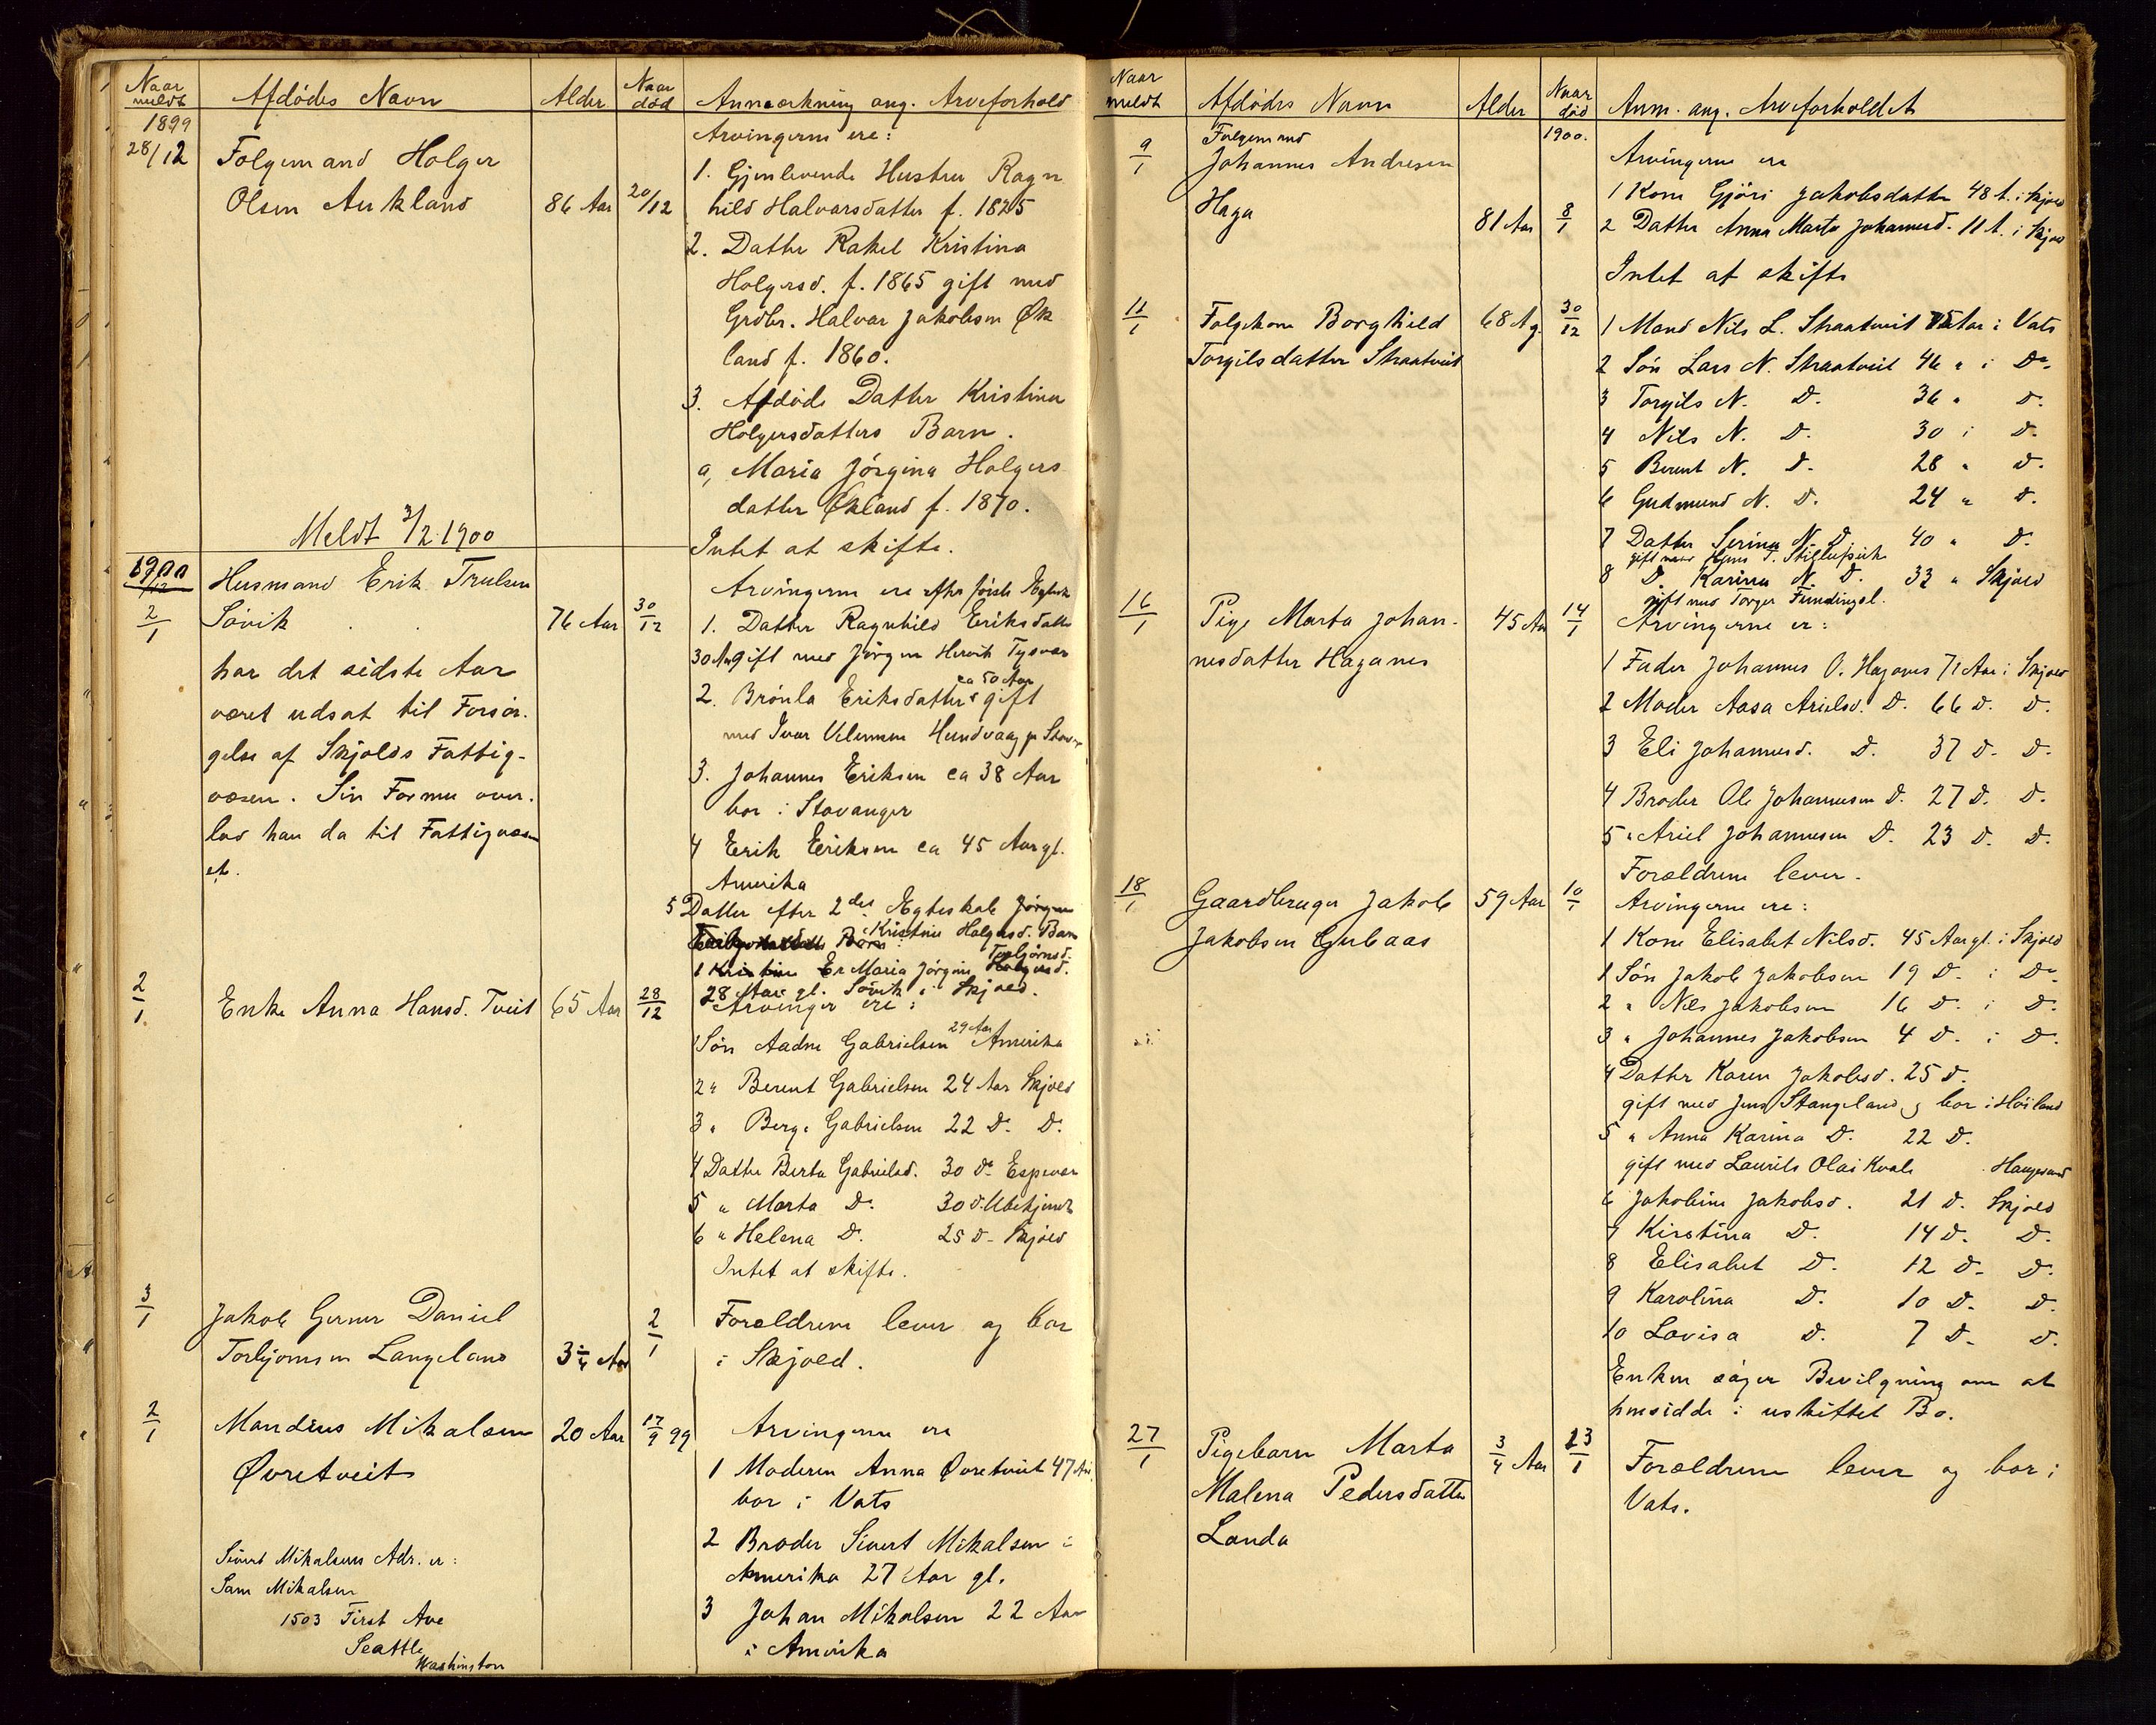 Naar meldt Afdödes Navn Alder Naar död Anmærkning ang. Arveforhold
1899
28/12 Folgemand Holger
Olsen Aukland 86 Aar 20/12
Arvingerne ere:
1. Gjenlevende Hustru Ragn
hild Halvarsdatter f. 1825
2. Datter Rakel Kristina
Holgersd. f. 1865 gift med
Grdbr. Halvar Jakobsen Øk
land f. 1860.
3. Afdöde Datter Kristina
Holgersdatters Barn.
a, Maria Jörgina Holgers
datter Økland f. 1870.
Intet at skifte.
Meldt 3/2 1900
1900
2/1 Husmand Erik Trulsen
Sövik 76 Aar 30/12
har det sidste Aar
været udsat til Forsör-
gelse af Skjolds Fattig-
væsen. Sin Formue over-
lod han da til Fattigvæsen
et.
Arvingerne ere efter förste Egtesk
1. Datter Ragnhild Eriksdatter
30 Aar gift med Jörgen Hervik Tysvær
2. Brönla Eriksdatter ca 50 Aar gift
med Ivar Velemsen Hundvaag pr Stavanger
3. Johannes Eriksen ca 38 Aar
bor i Stavanger
4 Erik Eriksen ca 45 Aar gl.
Amerika
5 Datter efter 2det Egteskab Jörgine
Kristine Holgersd. Barn
1 Er Maria Jörgine Torbjörnsd.
28 Aar gl. Sövik i Skjold.
2/1 Enke Anna Hansd. Tveit 65 Aar 28/12
Arvinger ere:
1 Sön Aadne Gabrielsen 29 Aar Amerika
2 " Berent Gabrielsen 24 Aar Skjold
3 " Berge Gabrielsen 22 D. D.
4 Datter Berta Gabrielsd. 30 Do Espevær
5 " Marta D. 30 D. Ubekjendt
6 " Helena D. 25 D. Skjold
Intet at skifte.
3/1 Jakob Gerner Daniel
Torbjornsen Langeland 3 1/4 Aar 2/1
Forældrene lever og bor
i Skjold.
2/1 Mandius Mikalsen 20 Aar 17/9 99
Øvretveit
Arvingerne ere
1 Moderen Anna Øvretveit 47 Aar
bor i Vats
2 Broder Sivert Mikalsen i
Amerika 27 Aar gl.
3 Johan Mikalsen 22 Aar
i Amerika
Sivert Mikalsens Adr. er:
Sam Mikalsen
1503 First Ave
Seattle
Washington
Naar meldt Afdödes Navn Alder Naar död Anm. ang. Arveforholdet
1900.
9/1 Folgemand
Johannes Andresen
Haga 81 Aar 8/1
Arvingerne ere
1 Kone Gjöri Jakobsdatter 48 A. i Skjold
2 Datter Anna Marta Johannesd. 11 A. i Skjold
Intet at skifte
11/1 Folgekone Borghild 68 Ag. 30/12
Torgilsdatter Straatveit
1 Mand Nils L. Straatveit Aar i Vats
2 Sön Lars N. Straatveit 46 " i Do.
3 Torgils N. D. 36 " D.
4 Nils N. D. 30 i D.
5 Berent N. D. 28 " D.
6 Gudmund N. D. 24 " D.
7 Datter Serina N. D. 40 " D.
gift med
8 D. Karina N. D. 33 " Skjold
gift med Torger
16/1 Pige Marta Johan- 45 Aar 14/1
nesdatter Haganes
Arvingerne er:
1 Fader Johannes O. Haganes 71 Aar i Skjold
2 Moder Aasa Arielsd. D. 66 D. D.
3 Eli Johannesd. D. 37 D. D.
4 Broder Ole Johannesen D. 27 D. D.
5 " Ariel Johannesen D. 23 D. D.
Forældrene lever.
18/1 Gaardbruger Jakob 59 Aar 10/1
Jakobsen Grubaas
Arvingerne ere:
1 Kone Elisabet Nilsd. 45 Aar gl. i Skjold
1 Sön Jakob Jakobsen 19 D. i Do
2 " Nils Jakobsen 16 D. i D.
3 " Johannes Jakobsen 4 D. i D.
4 Datter Karen Jakobsd. 25 D.
gift med Jens Stangeland, bor i Höiland
5 " Anna Karina D. 22 D.
gift med Laurits Olai Kvale Haugesund
6 Jakobine Jakobsd. 21 D. Skjold
7 Kirstina D. 14 D. D.
8 Elisabet D. 12 D. D.
9 Karolina D. 10 D. D.
10 Lovisa D. 7 D. D.
Enken söger Bevilgning om at
hensidde i uskiftet Bo.
27/1 Pigebarn Marta 3/4 Aar 23/1
Malena Pedersdatter
Landa
Forældrene lever og bor i
Vats.